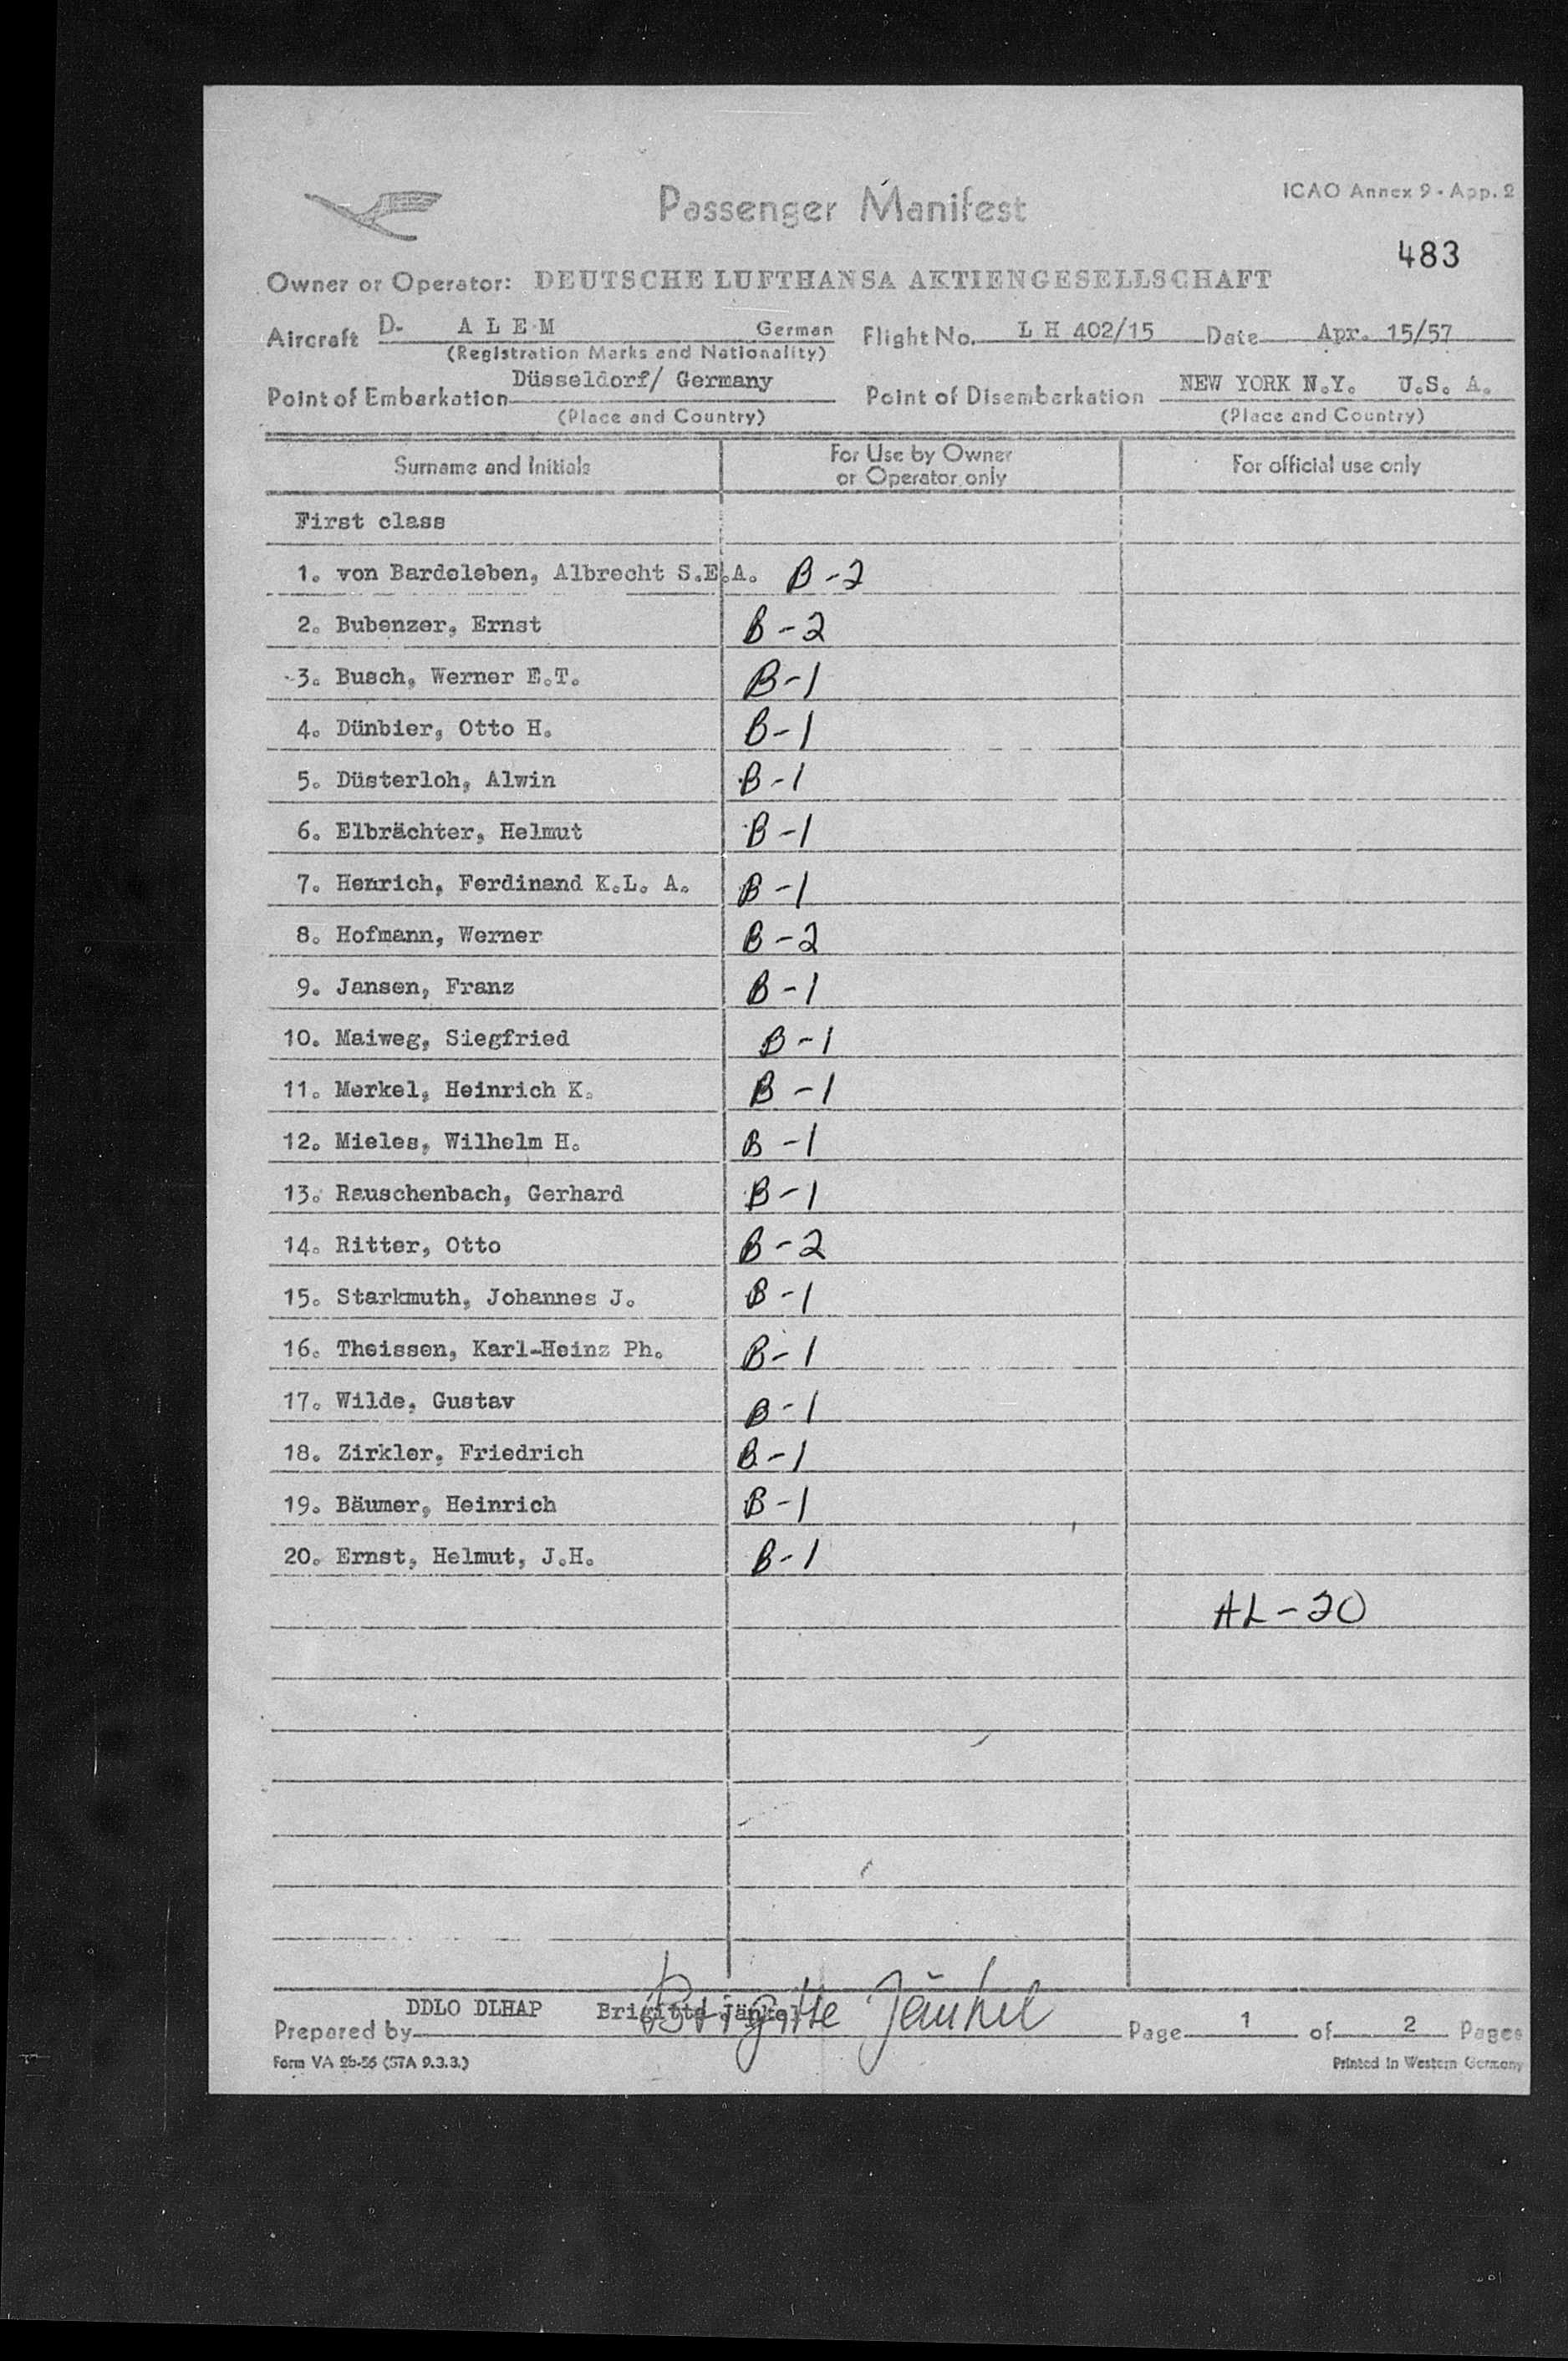 Passenger Manifest
ICAO Annex 9 - App. 2
483
Owner or Operator: DEUTSCHE LUFTHANSA AKTIENGESELLSCHAFT
Aircraft D- A L E M German Flight No. L H 402/15 Date Apr. 15/57
(Registration Marks and Nationality)
Point of Embarkation Düsseldorf/ Germany Point of Disembarkation NEW YORK N.Y. U.S. A.
(Place and Country) (Place and Country)
Surname and Initials For Use by Owner or Operator only For official use only
First class
1. von Bardeleben, Albrecht S.E.A. B-2
2. Bubenzer, Ernst B-2
3. Busch, Werner E.T. B-1
4. Dünbier, Otto H. B-1
5. Düsterloh, Alwin B-1
6. Elbrächter, Helmut B-1
7. Henrich, Ferdinand K.L. A. B-1
8. Hofmann, Werner B-2
9. Jansen, Franz B-1
10. Maiweg, Siegfried B-1
11. Merkel, Heinrich K. B-1
12. Mieles, Wilhelm H. B-1
13. Rauschenbach, Gerhard B-1
14. Ritter, Otto B-2
15. Starkmuth, Johannes J. B-1
16. Theissen, Karl-Heinz Ph. B-1
17. Wilde, Gustav B-1
18. Zirkler, Friedrich B-1
19. Bäumer, Heinrich B-1
20. Ernst, Helmut, J.H. B-1
AL-20
Prepared by DDLO DLHAP Brigitte Jänkel Brigitte Jänkel Page 1 of 2 Pages
Form VA 2b-56 (STA 9.3.3.) Printed in Western Germany